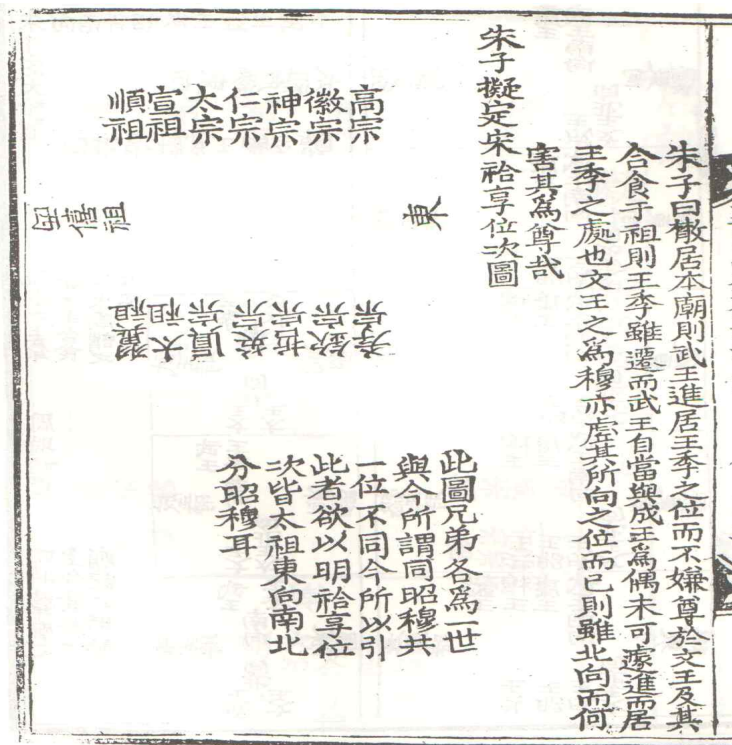 朱子曰散居本廟則武王進居王季之位而不嫌尊於文王及其
合食于祖則王季雖遷而武王自當與成王爲偶未可遽進而居
王季之處也文王之爲穆亦虛其所向之位而已則雖北向而何
害其爲尊哉
朱子擬定宋祫享位次圖
高宗
徽宗
神宗
仁宗
太宗
宣祖
順祖
東
僖祖
孝宗
欽宗
哲宗
英宗
眞宗
太祖
翼祖
此圖兄弟各爲一世
與今所謂同昭穆共
一位不同今所以引
此者欲以明祫享位
次皆太祖東向南北
分昭穆耳